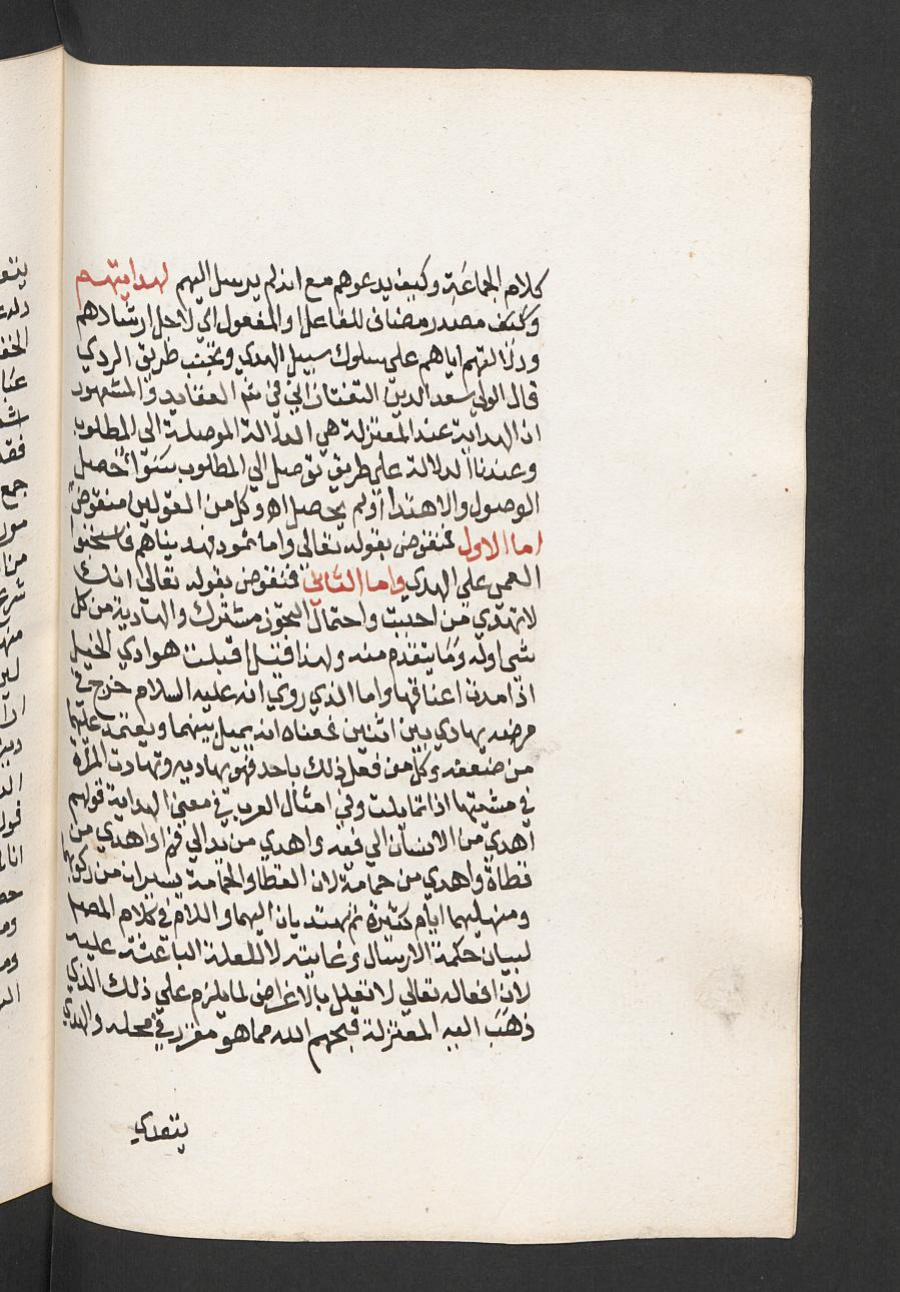 كلام الجماعة وكيف يدعوهم مع انه لم يرسل اليهم لهدايتهم
مصدر مضاف للفاعل او المفعول اي لاجل ارشادهم
اياهم على سلوك سبيل الهدي وتجنب طريق الردي
قال المولى سعد الدين التفتازاني في شرح العقايد والمشهور
ان الهداية عند المعتزلة هي الدلالة الموصلة الى المطلوب
وعندنا الدلالة على طريق توصل الي المطلوب سواء حصل
الوصول والاهتدا او لم يحصل اه وكل من القولين منقوض
اما الاول فمنقوض بقوله تعالى واما ثمود فهديناهم فاستحبوا
العمي علي الهدي واما الثاني فمنقوض بقوله تعالى انك
لا تهدي من احببت واحتمال التجوز مشترك والهادية من كل
شي اوله وما يتقدم منه ولهذا قيل اقبلت هوادي الخيل
اذا مدت اعناقها واما الذي روي انه عليه السلام خرج في
مرضه يهادي بين اثنين فمعناه انه يميل بينهما ويعتمد عليهما
من ضعفه وكل من فعل ذلك باحد فهو يهاديه وتهادت المراة
في مشيتها اذا تمايلت وفي امثال العرب في معنى الهداية قولهم
اهدي من الانسان الي فمه واهدي من يد الي فم واهدي من
قطاة واهدي من حمامة لان القطا والحمامة يسيران من
ومنهليهما ايام كثيرة ثم يهتديان اليهما واللام في كلام المصنف
لبيان حكمة الارسال وغايته لا للعلة الباعثة عليه
لان افعاله تعالي لا تعلل بالاغراض لما يلزم علي ذلك الذي
ذهب اليه المعتزلة قبحهم الله مما هو مقرر في محله والهدي
يتعدي